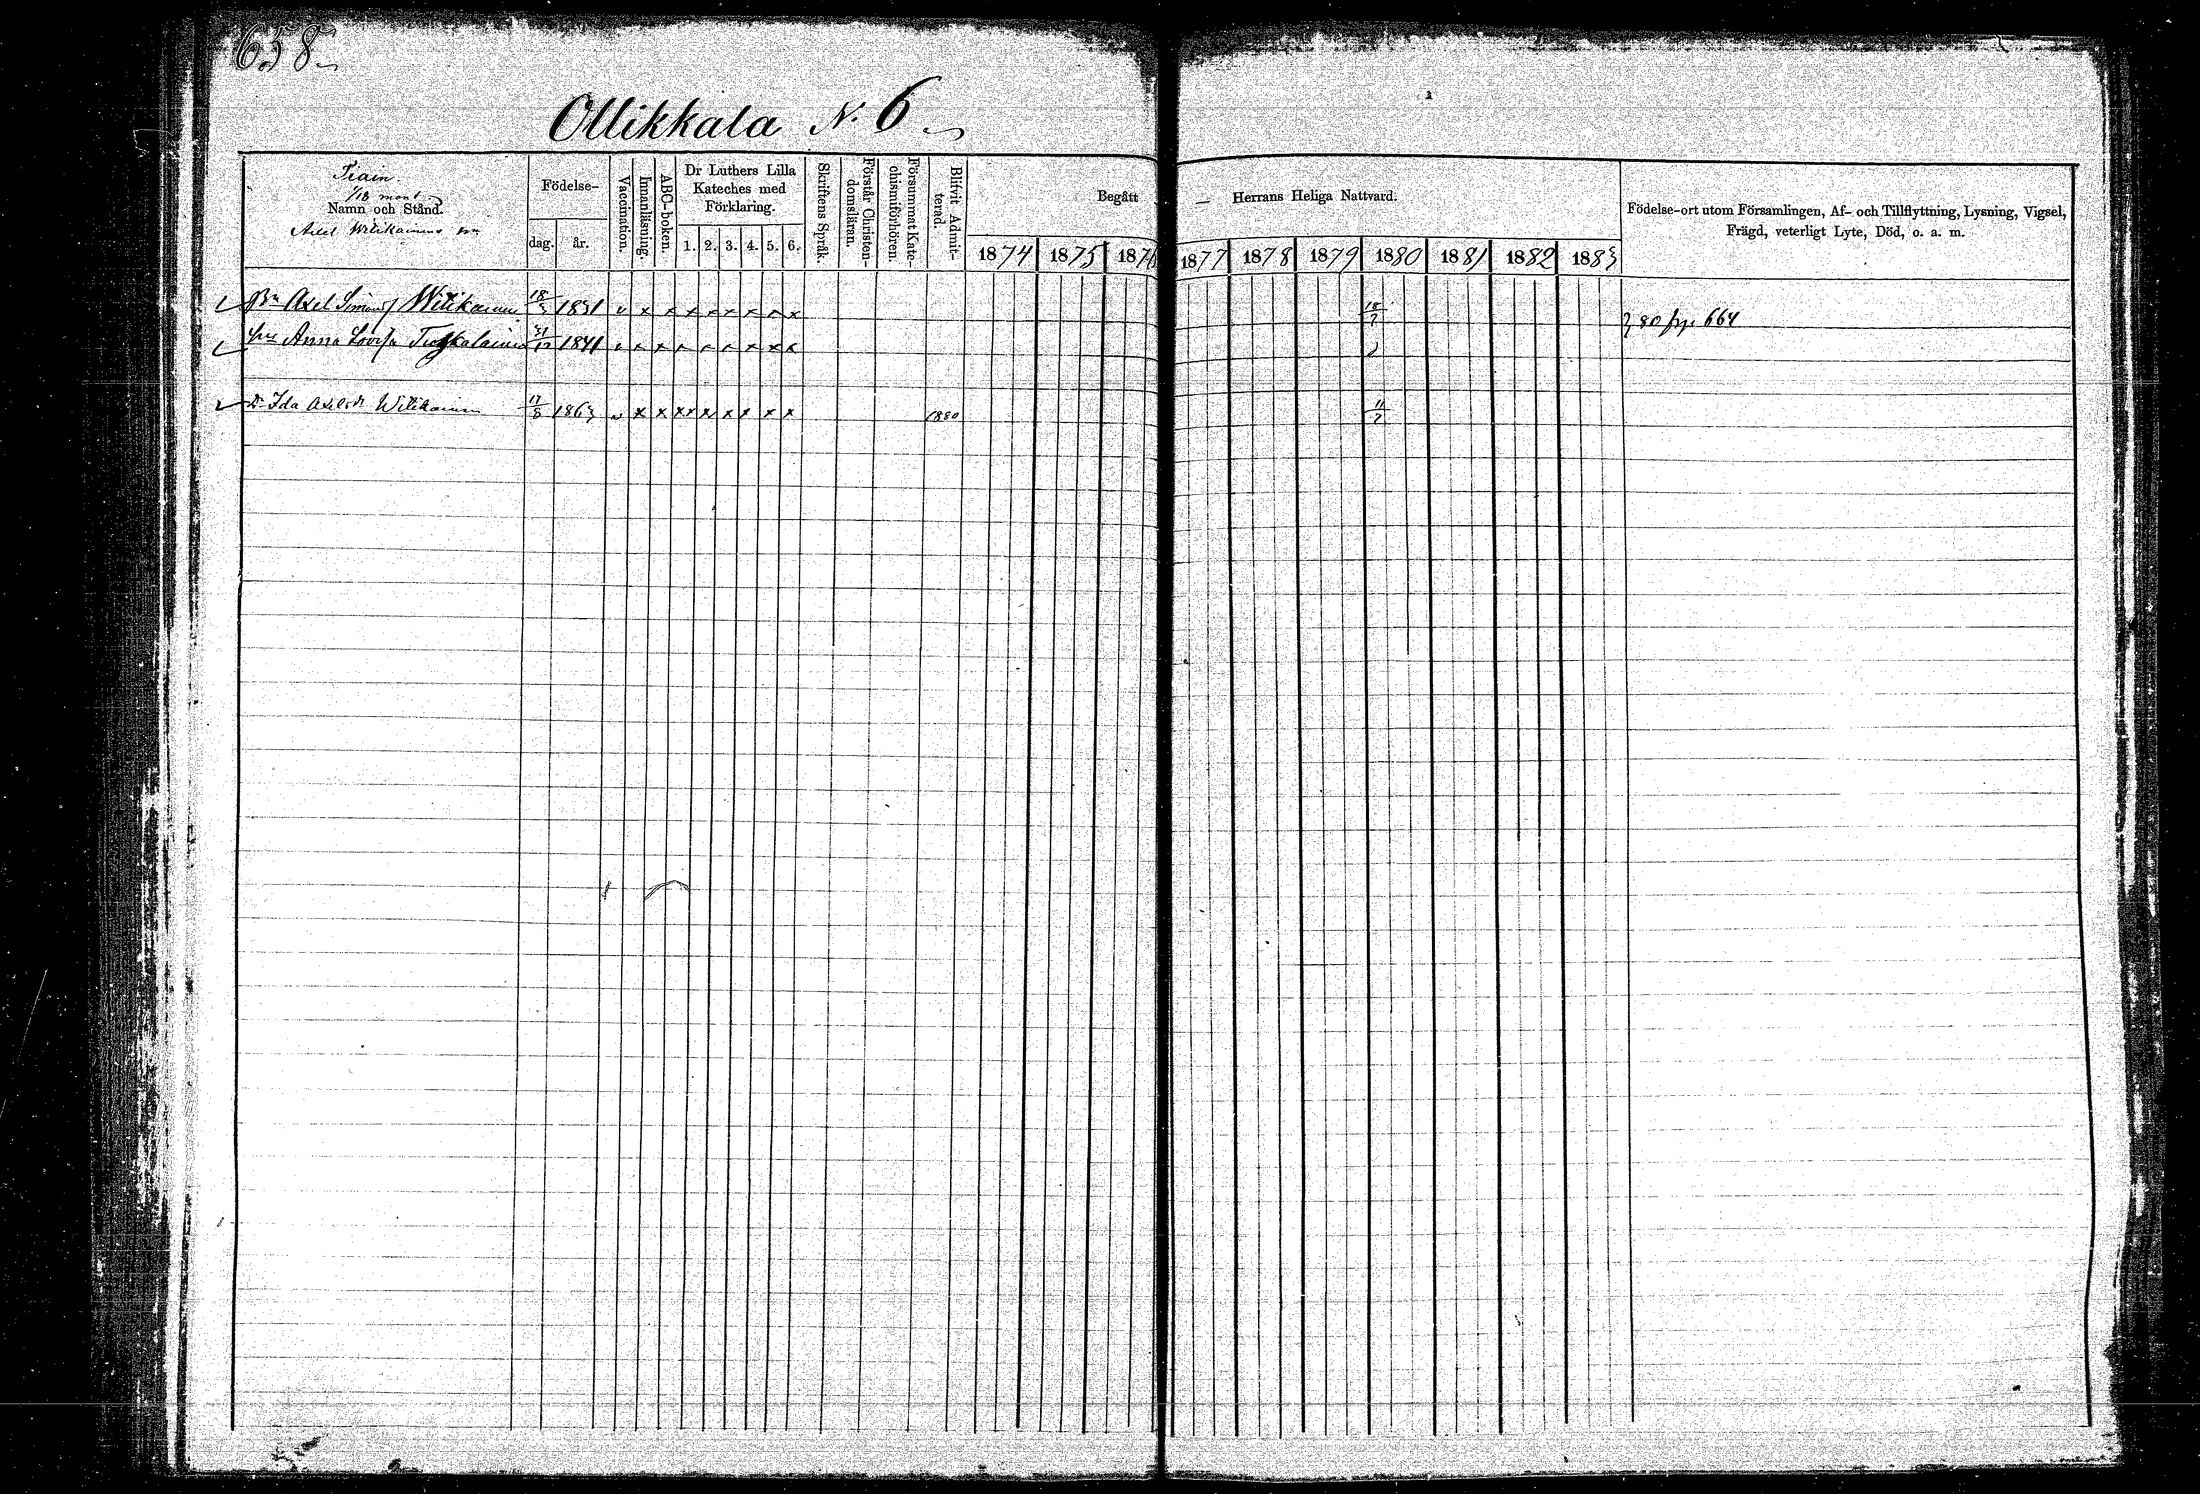 658
Ollikkala N. 6
Namn och Stånd.
Födelse-
dag. år.
Vaccination.
Innanläsning.
ABC-boken.
Dr Luthers Lilla
Kateches med
Förklaring.
1. 2. 3. 4. 5. 6.
Skriftens Språk.
Förstår Christen-
domsläran.
Försummat Kate-
chismiförhören.
Blifvit Admit-
terad.
Begått Herrans Heliga Nattvard.
1874 1875 1876 1877 1878 1879 1880 1881 1882 1883
Födelse-ort utom Församlingen, Af- och Tillflyttning, Lysning, Vigsel,
Frägd, veterligt Lyte, Död, o. a. m.
Axel Witikainen 18 1831 v x x x x x x x x 18/7 80 664
Anna Lovisa 1841
D. Ida Axelsdr Witikainen 17/8 1863 v x x x x x x x x x 1880 11/7